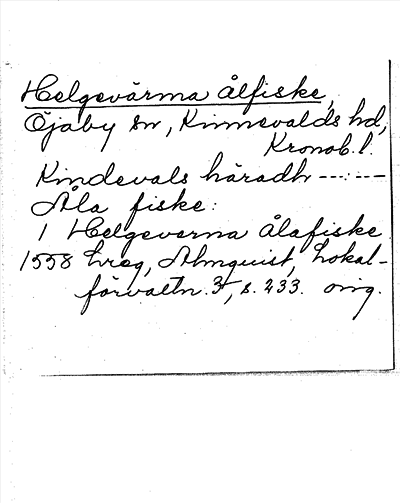 Helgevärma ålfiske,
Öjaby sn, Kinnevalds hd,
Kronob. l.
Kindevals häradh ---:---
Åla fiske:
1 Helgevarna ålafiske.
1558 Lreg, Almquist, Lokal-
förvaltn. 3, s. 233. orig.